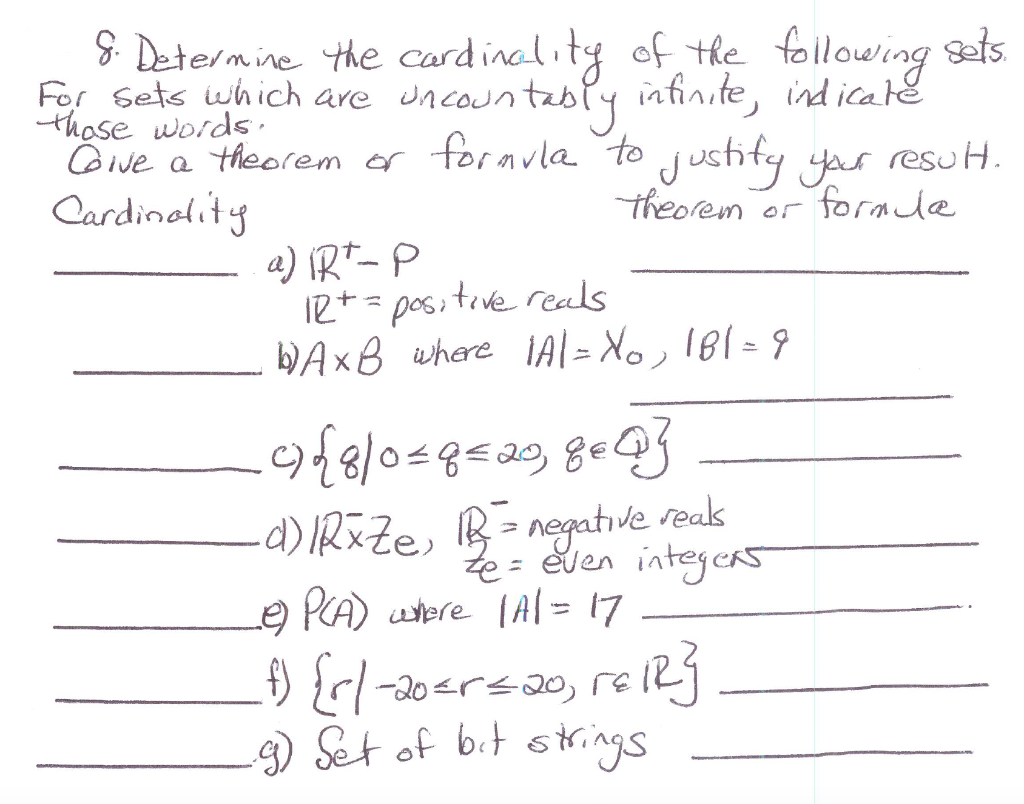 8. Determine the cardinality of the following sets.
For sets which are uncountably infinite, indicate
those words.
Give a theorem or formula to justify your result.
Cardinality theorem or formula
a) ℝ⁺ - P
ℝ⁺ = positive reals
b) A x B where |A| = ℵ₀, |B| = 9
c) {q | 0 ≤ q ≤ 20, q ∈ ℚ}
d) ℝ⁻ x Ze, ℝ⁻ = negative reals
Ze = even integers
e) P(A) where |A| = 17
f) {r | -20 ≤ r ≤ 20, r ∈ ℝ}
g) Set of bit strings